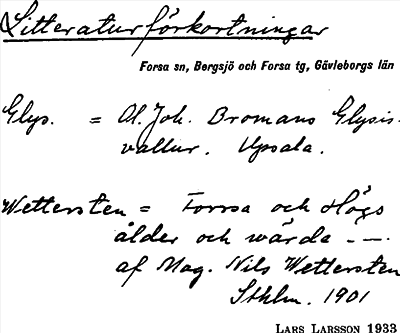 Litteraturförkortningar
Forsa sn, Bergsjö och Forsa tg, Gävleborgs län
Glys. = Ol. Joh. Bromans Glysis-
vallur. Upsala.
Wettersten = Forssa och Högs
ålder och wärda - —.
af Mag. Nils Wettersten
Sthlm. 1901
LARS LARSSON 1933